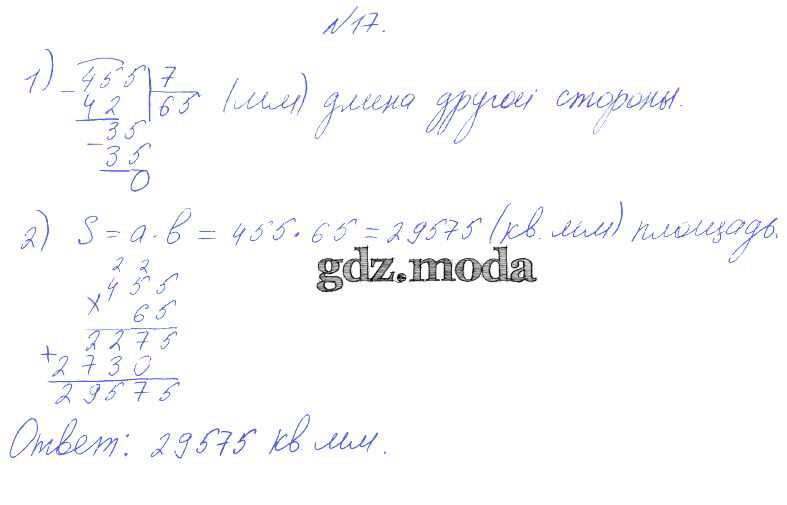 №17.
1) 455 | 7
- 42 | 65 (мм) длина другой стороны.
35
- 35
0
2) S = a · b = 455 · 65 = 29575 (кв. мм) площадь.
gdz.moda
2 2
× 455
65
2275
+ 2730
29575
Ответ: 29575 кв мм.